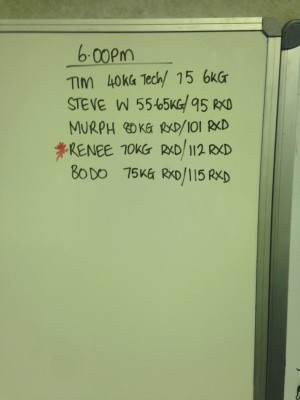 6.00PM
TIM 40KG Tech/ 75 6KG
STEVE W 55-65KG/95 RXD
MURPH 80KG RXD/101 RXD
*RENEE 70KG RXD/112 RXD
BODO 75KG RXD/115 RXD